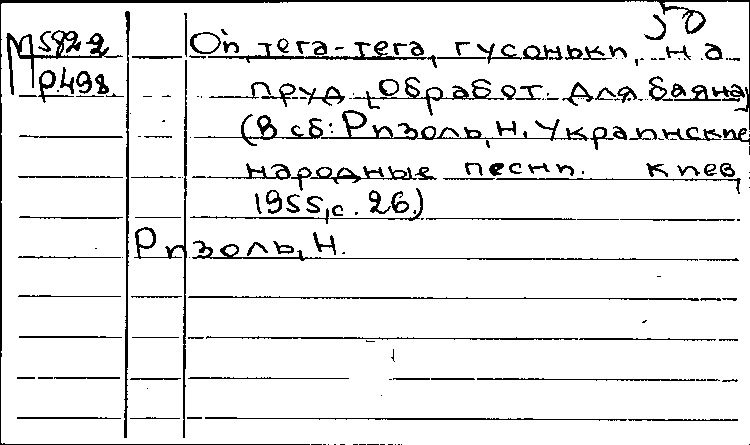 50
М 592-2 Ой, тега-тега, гусоньки, на
Р498. пруд. [Обработ. для баяна]
(В сб: Ризоль, Н. Украинские
народные песни. Киев,
1955, с. 26.)
Ризоль, Н.